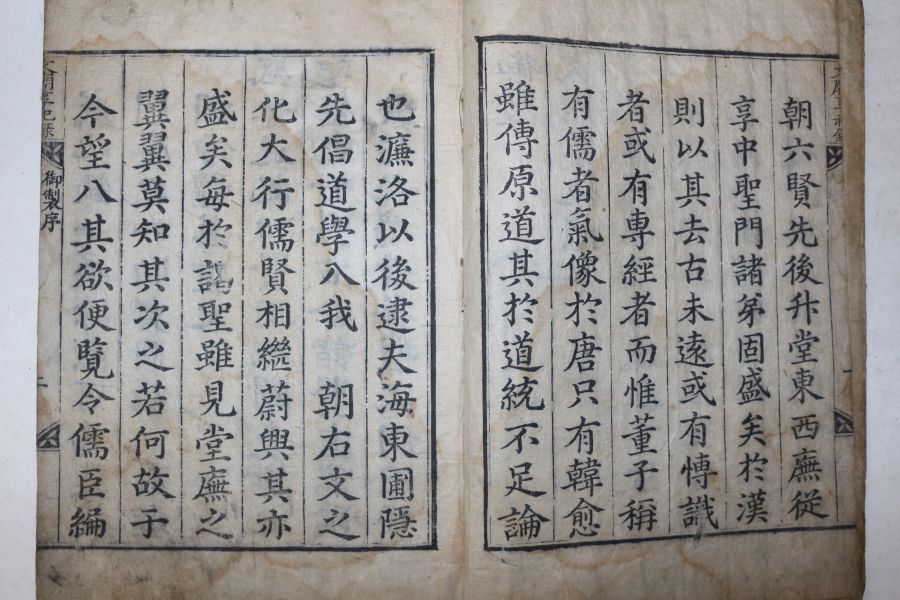 朝六賢先後升堂東西廡從
享中聖門諸弟固盛矣於漢
則以其去古未遠或有慱識
者或有専經者而惟董子稱
有儒者氣像於唐只有韓愈
雖傳原道其於道統不足論
也濂洛以後逮夫海東圃隱
先倡道學入我　朝右文之
化大行儒賢相繼蔚興其亦
盛矣每於謁聖雖見堂廡之
翼翼莫知其次之若何故于
今望八其欲便覽令儒臣編
御製序